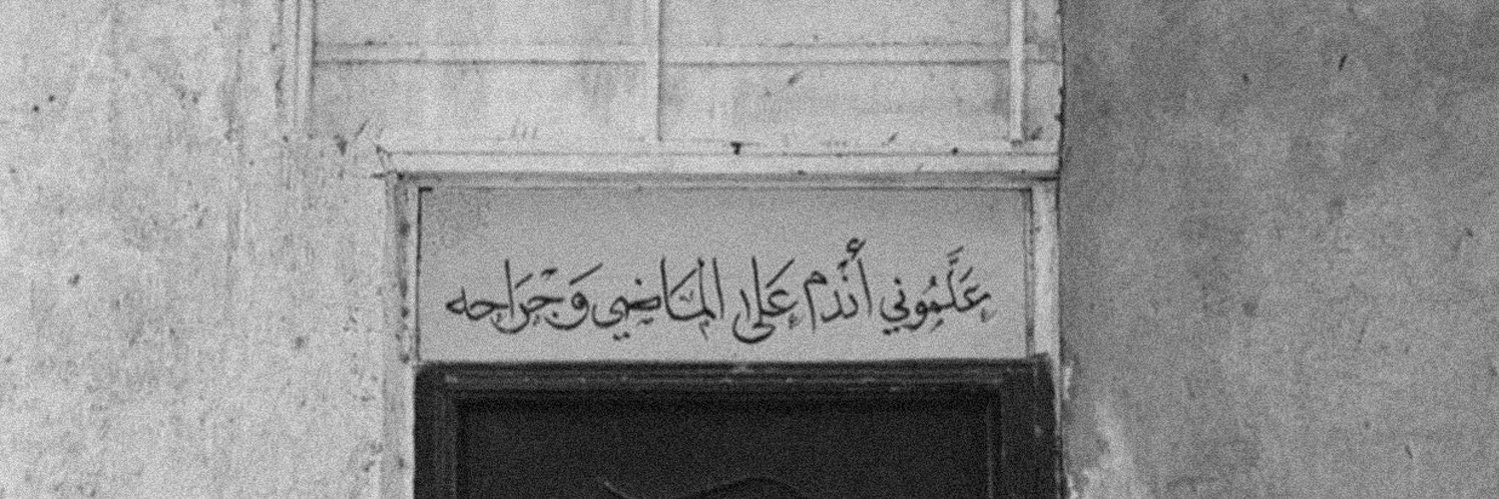 عَلَّمُوني أندم عَلى المَاضي وَجْرَاحه